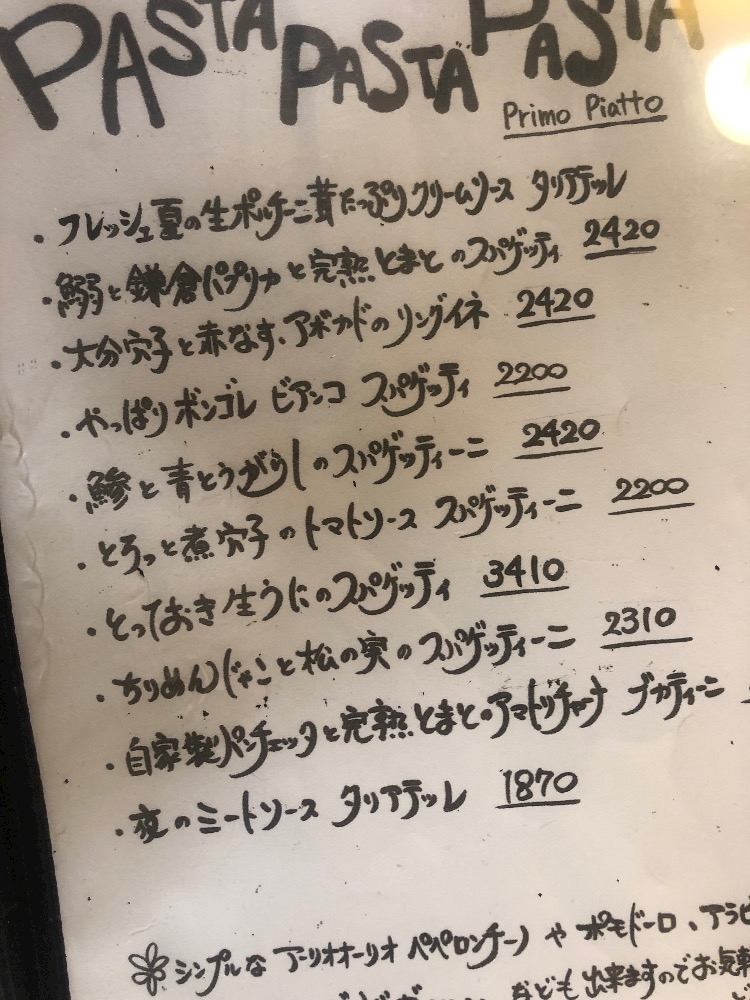 PASTA PASTA PASTA
Primo Piatto
・フレッシュ夏の生ポルチーニ茸たっぷりクリームソース タリアテッレ
・鰯と鎌倉パプリカと完熟とまとのスパゲッティ 2420
・大分穴子と赤なす、アボカドのリングイネ 2420
・やっぱりボンゴレ ビアンコ スパゲッティ 2200
・鯵と青とうがらしのスパゲッティーニ 2420
・とろっと煮穴子のトマトソース スパゲッティーニ 2200
・とっておき生うにのスパゲッティ 3410
・ちりめんじゃこと松の実のスパゲッティーニ 2310
・自家製パンチェッタと完熟とまとのアマトリチャーナ ブカティーニ
・夜のミートソース タリアテッレ 1870
シンプルな アーリオオーリオ ペペロンチーノ や ポモドーロ、アラビ
なども出来ますのでお気軽